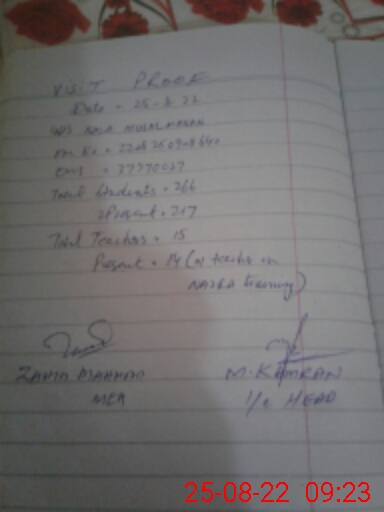 VISIT PROOF
Date = 25-8-22
GPS MUSALMANAN
EMIS = 37370027
Total Students = 266
Present = 217
Total Teachers = 15
Present = 14 (01 teacher on
training)
ZAHID MAHMAD
MEA
M. KAMRAN
I/C HEAD
25-08-22 09:23